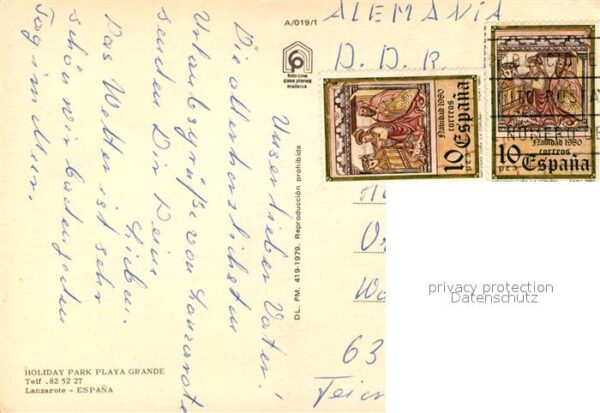 A/019/1
foto cine
casa planas
mallorca
DL. PM. 419-1979. Reproducción prohibida
Unser lieber Vater!
Die allerherzlichsten
Urlaubsgrüße von Lanzarote
senden Dir Deine
Lieben.
Das Wetter ist sehr
schön wir baden jeden
Tag im Meer.
HOLIDAY PARK PLAYA GRANDE
Telf. 82 52 27
Lanzarote - ESPAÑA
ALEMANIA
D. D. R.
Navidad 1980
correos
10 PTS España
Navidad 1980
correos
10 PTS España
NUMERO
63
privacy protection
Datenschutz